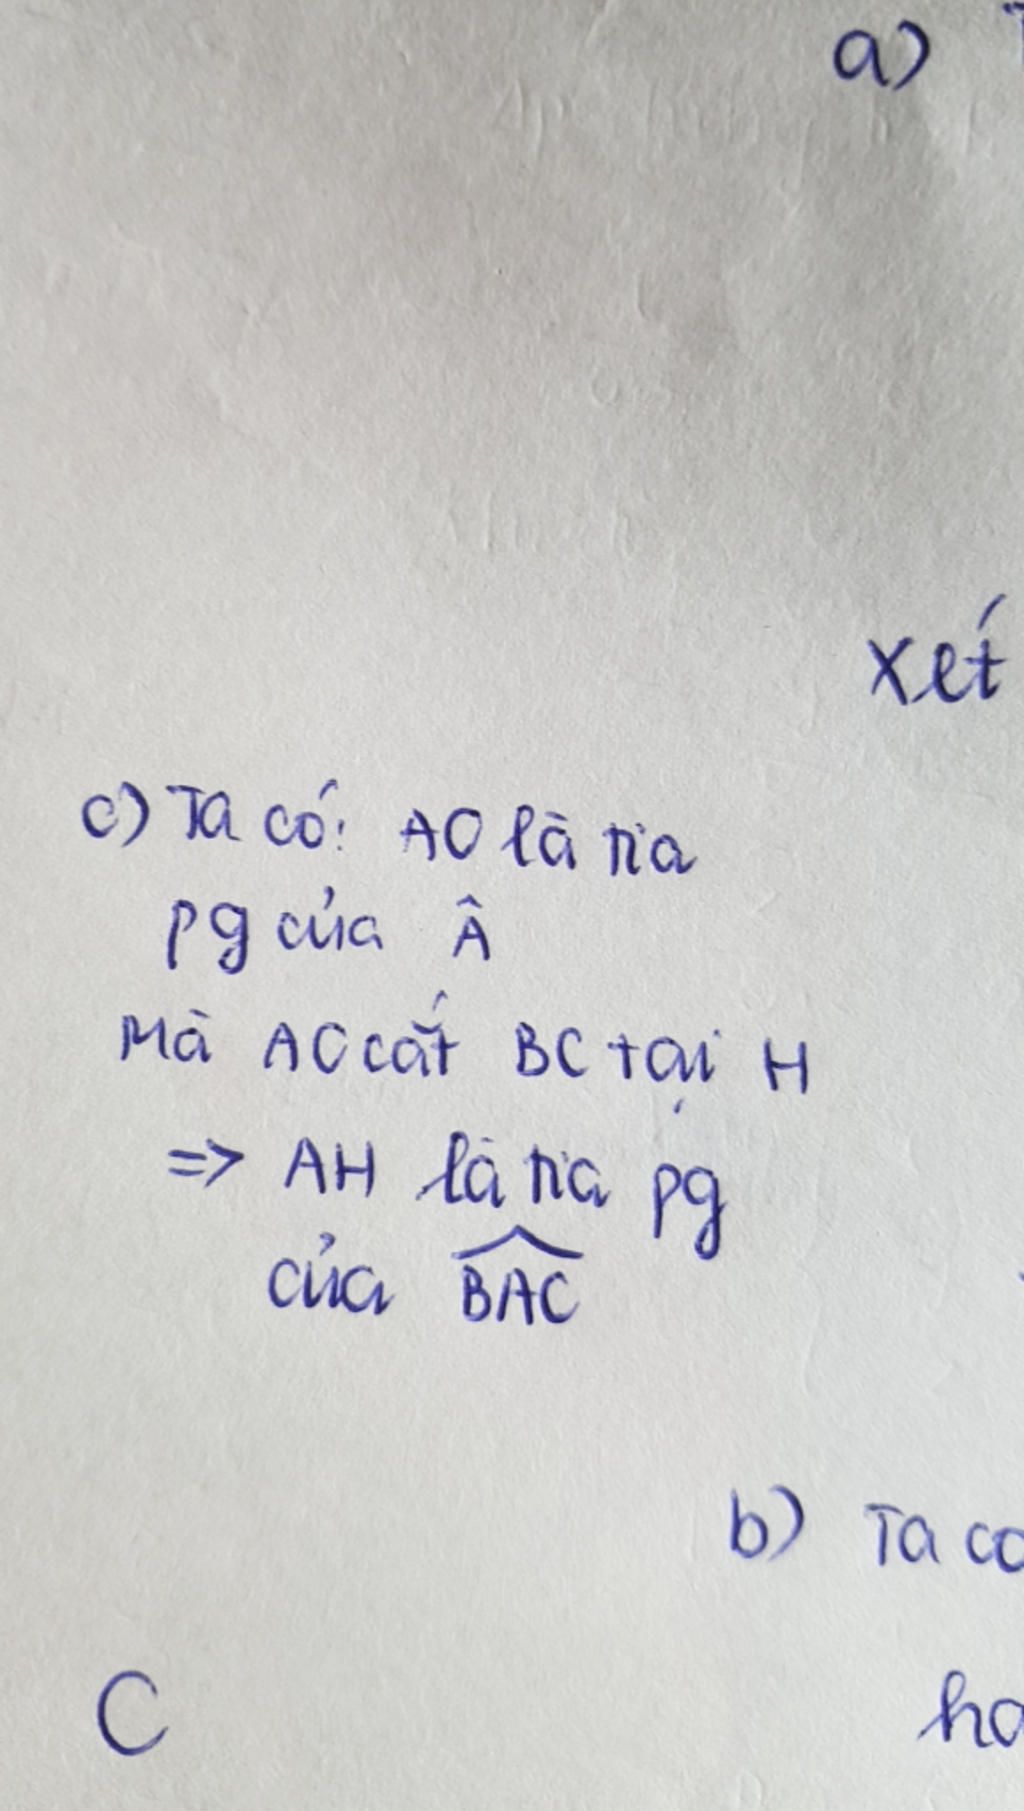 a)
xét
c) Ta có: AO là tia
pg của Â
Mà AO cắt BC tại H
=> AH là tia pg
của \widehat{BAC}
b) Ta có
C